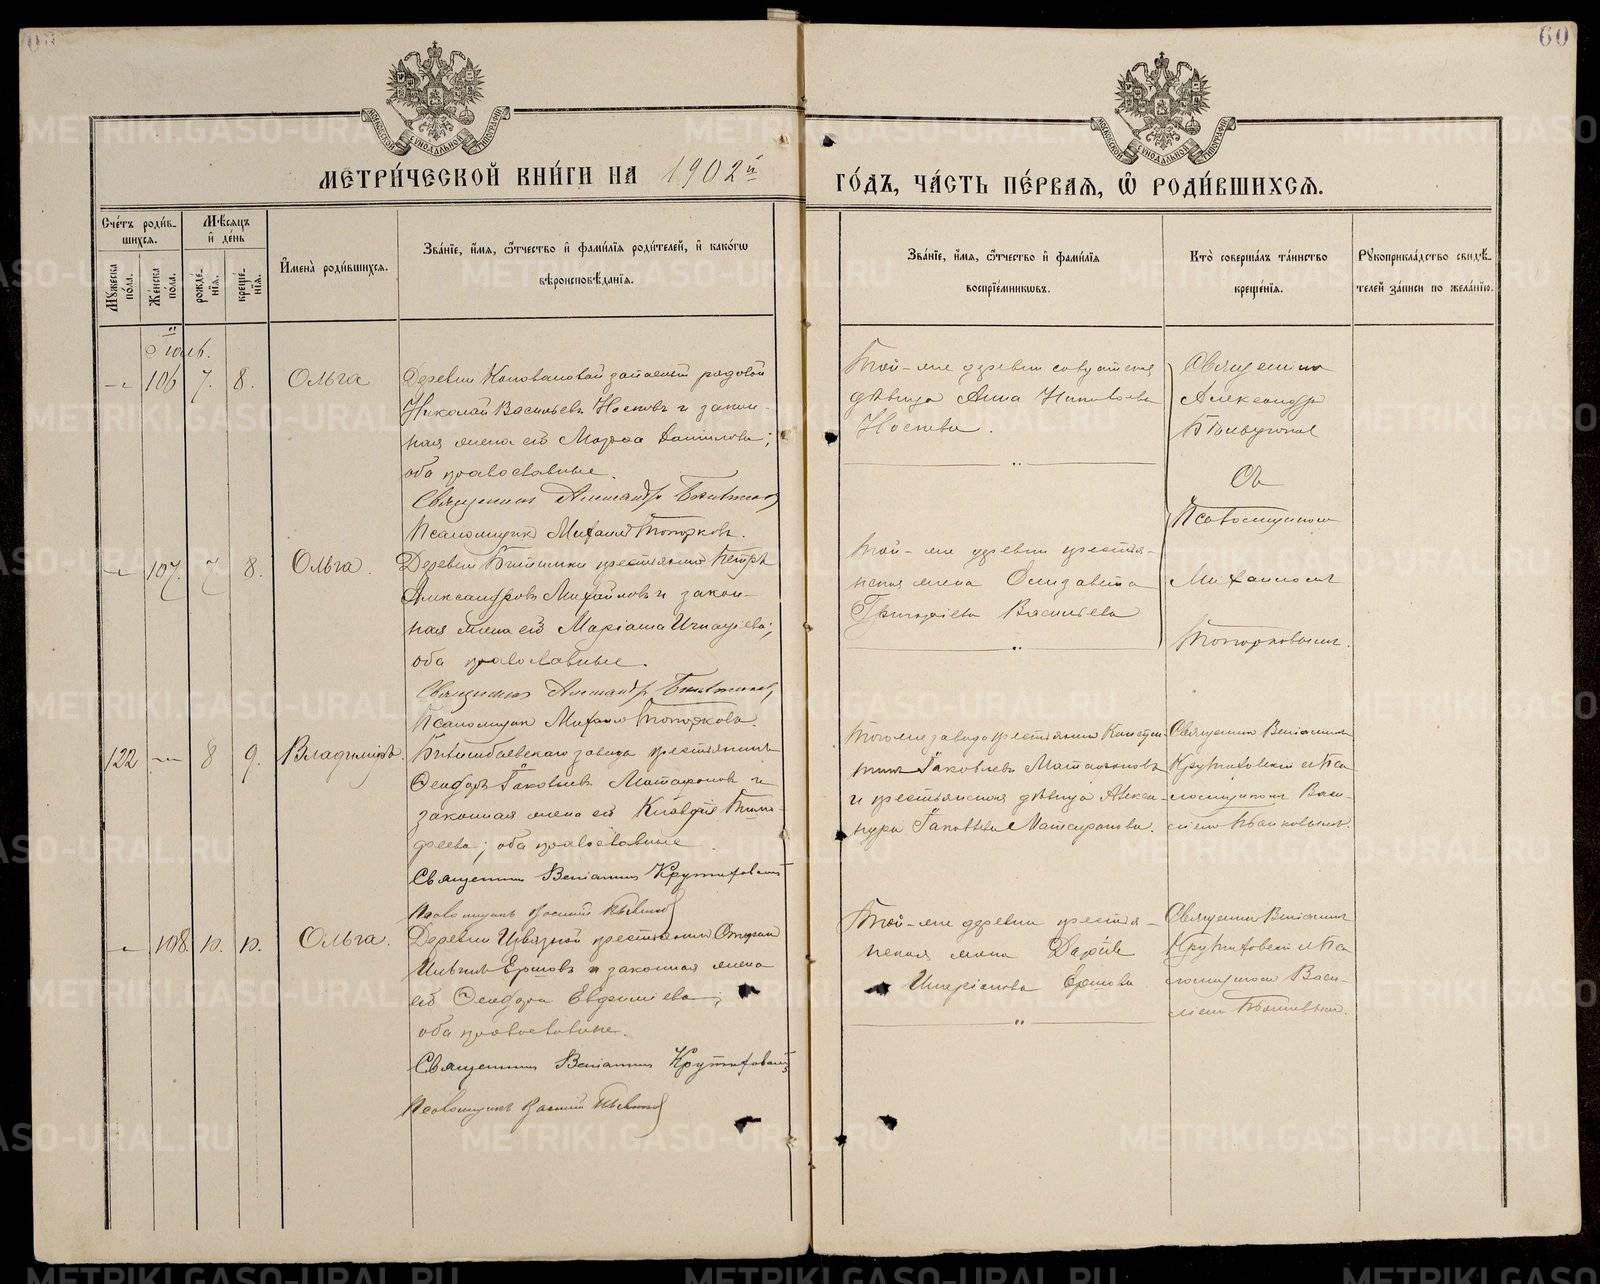 60
МЕТРИ́ЧЕСКОЙ КНИ́ГИ НА 1902й
ГО́ДЪ, ЧА́СТЬ ПЕ́РВАЯ, Ѿ РОДИ́ВШИХСЯ.
Сче́тъ роди́вшихся.
Мꙋжеска по́ла.
Же́нска по́ла.
Мѣ́сяцъ и҆ де́нь
рожде́нїя.
креще́нїя.
И҆мена̀ роди́вшихся.
Зва́нїе, и҆́мя, ѻ҆́тчество и҆ фами́лїя роди́телей, и҆ како́гѡ
вѣроисповѣ́данїя.
Зва́нїе, и҆́мя, ѻ҆́тчество и҆ фами́лїя
воспрїе́мникѡвъ.
Кто̀ соверша́лъ та́инство
креще́нїя.
Рꙋкоприкла́дство свидѣ́-
телей за́писи по жела́нїю.
Іюль.
106 7. 8. Ольга
Деревни запасный рядовой
Николай Васильевъ Носковъ и закон-
ная жена его Марѳа Данилова;
оба православные.
Священникъ Александръ
Псаломщикъ Михаилъ Топорковъ.
Той-же деревни
дѣвица Анна
Носкова.
Священникъ
Александръ
Съ
Псаломщикомъ
Михаиломъ
Топорковымъ.
107. 7 8. Ольга.
Деревни Битимки крестьянинъ Петръ
Александровъ Михайловъ и закон-
ная жена его Маріама Игнатіева;
оба православные.
Священникъ Александръ
Псаломщикъ Михаилъ Топорковъ.
Той-же деревни крестья-
нская жена Елизавета
Григоріева Васильева
122 8 9. Владиміръ.
Билимбаевскаго завода крестьянинъ
Ѳеодоръ Іаковлевъ Матафоновъ и
законная жена его Клавдія Тимо-
феева; оба православные.
Священникъ Веніаминъ
Псаломщикъ Василій
Того же завода крестьянинъ Констан-
тинъ Іаковлевъ Матафоновъ
и крестьянская дѣвица Алексан-
дра Іаковлева Матафонова.
Священникъ Веніаминъ
и Пса-
ломщикомъ Васи-
ліемъ
108. 10. 10. Ольга.
Деревни крестьянинъ Стефанъ
Ильинъ Ершовъ и законная жена
его Ѳеодора Евфиміева;
оба православные.
Священникъ Веніаминъ
Псаломщикъ Василій
Той-же деревни крестья-
нская жена Дарія
Ершова
Священникъ Веніаминъ
и Пса-
ломщикомъ Васи-
ліемъ
METRIKI.GASO-URAL.RU